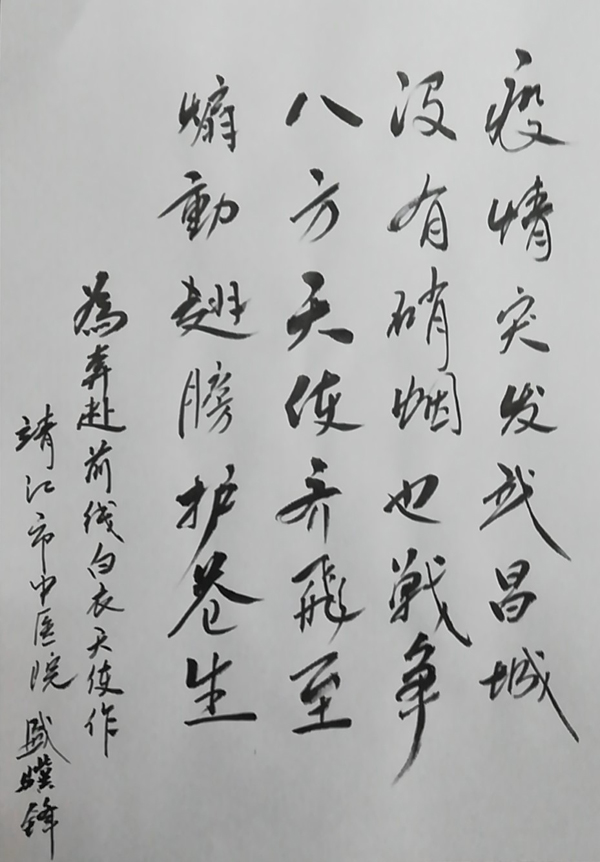 疫情突发武昌城
没有硝烟也戰争
八方天使齐飛至
煽動翅膀护苍生
為奔赴前线白衣天使作
靖江市中医院 盛骥锋